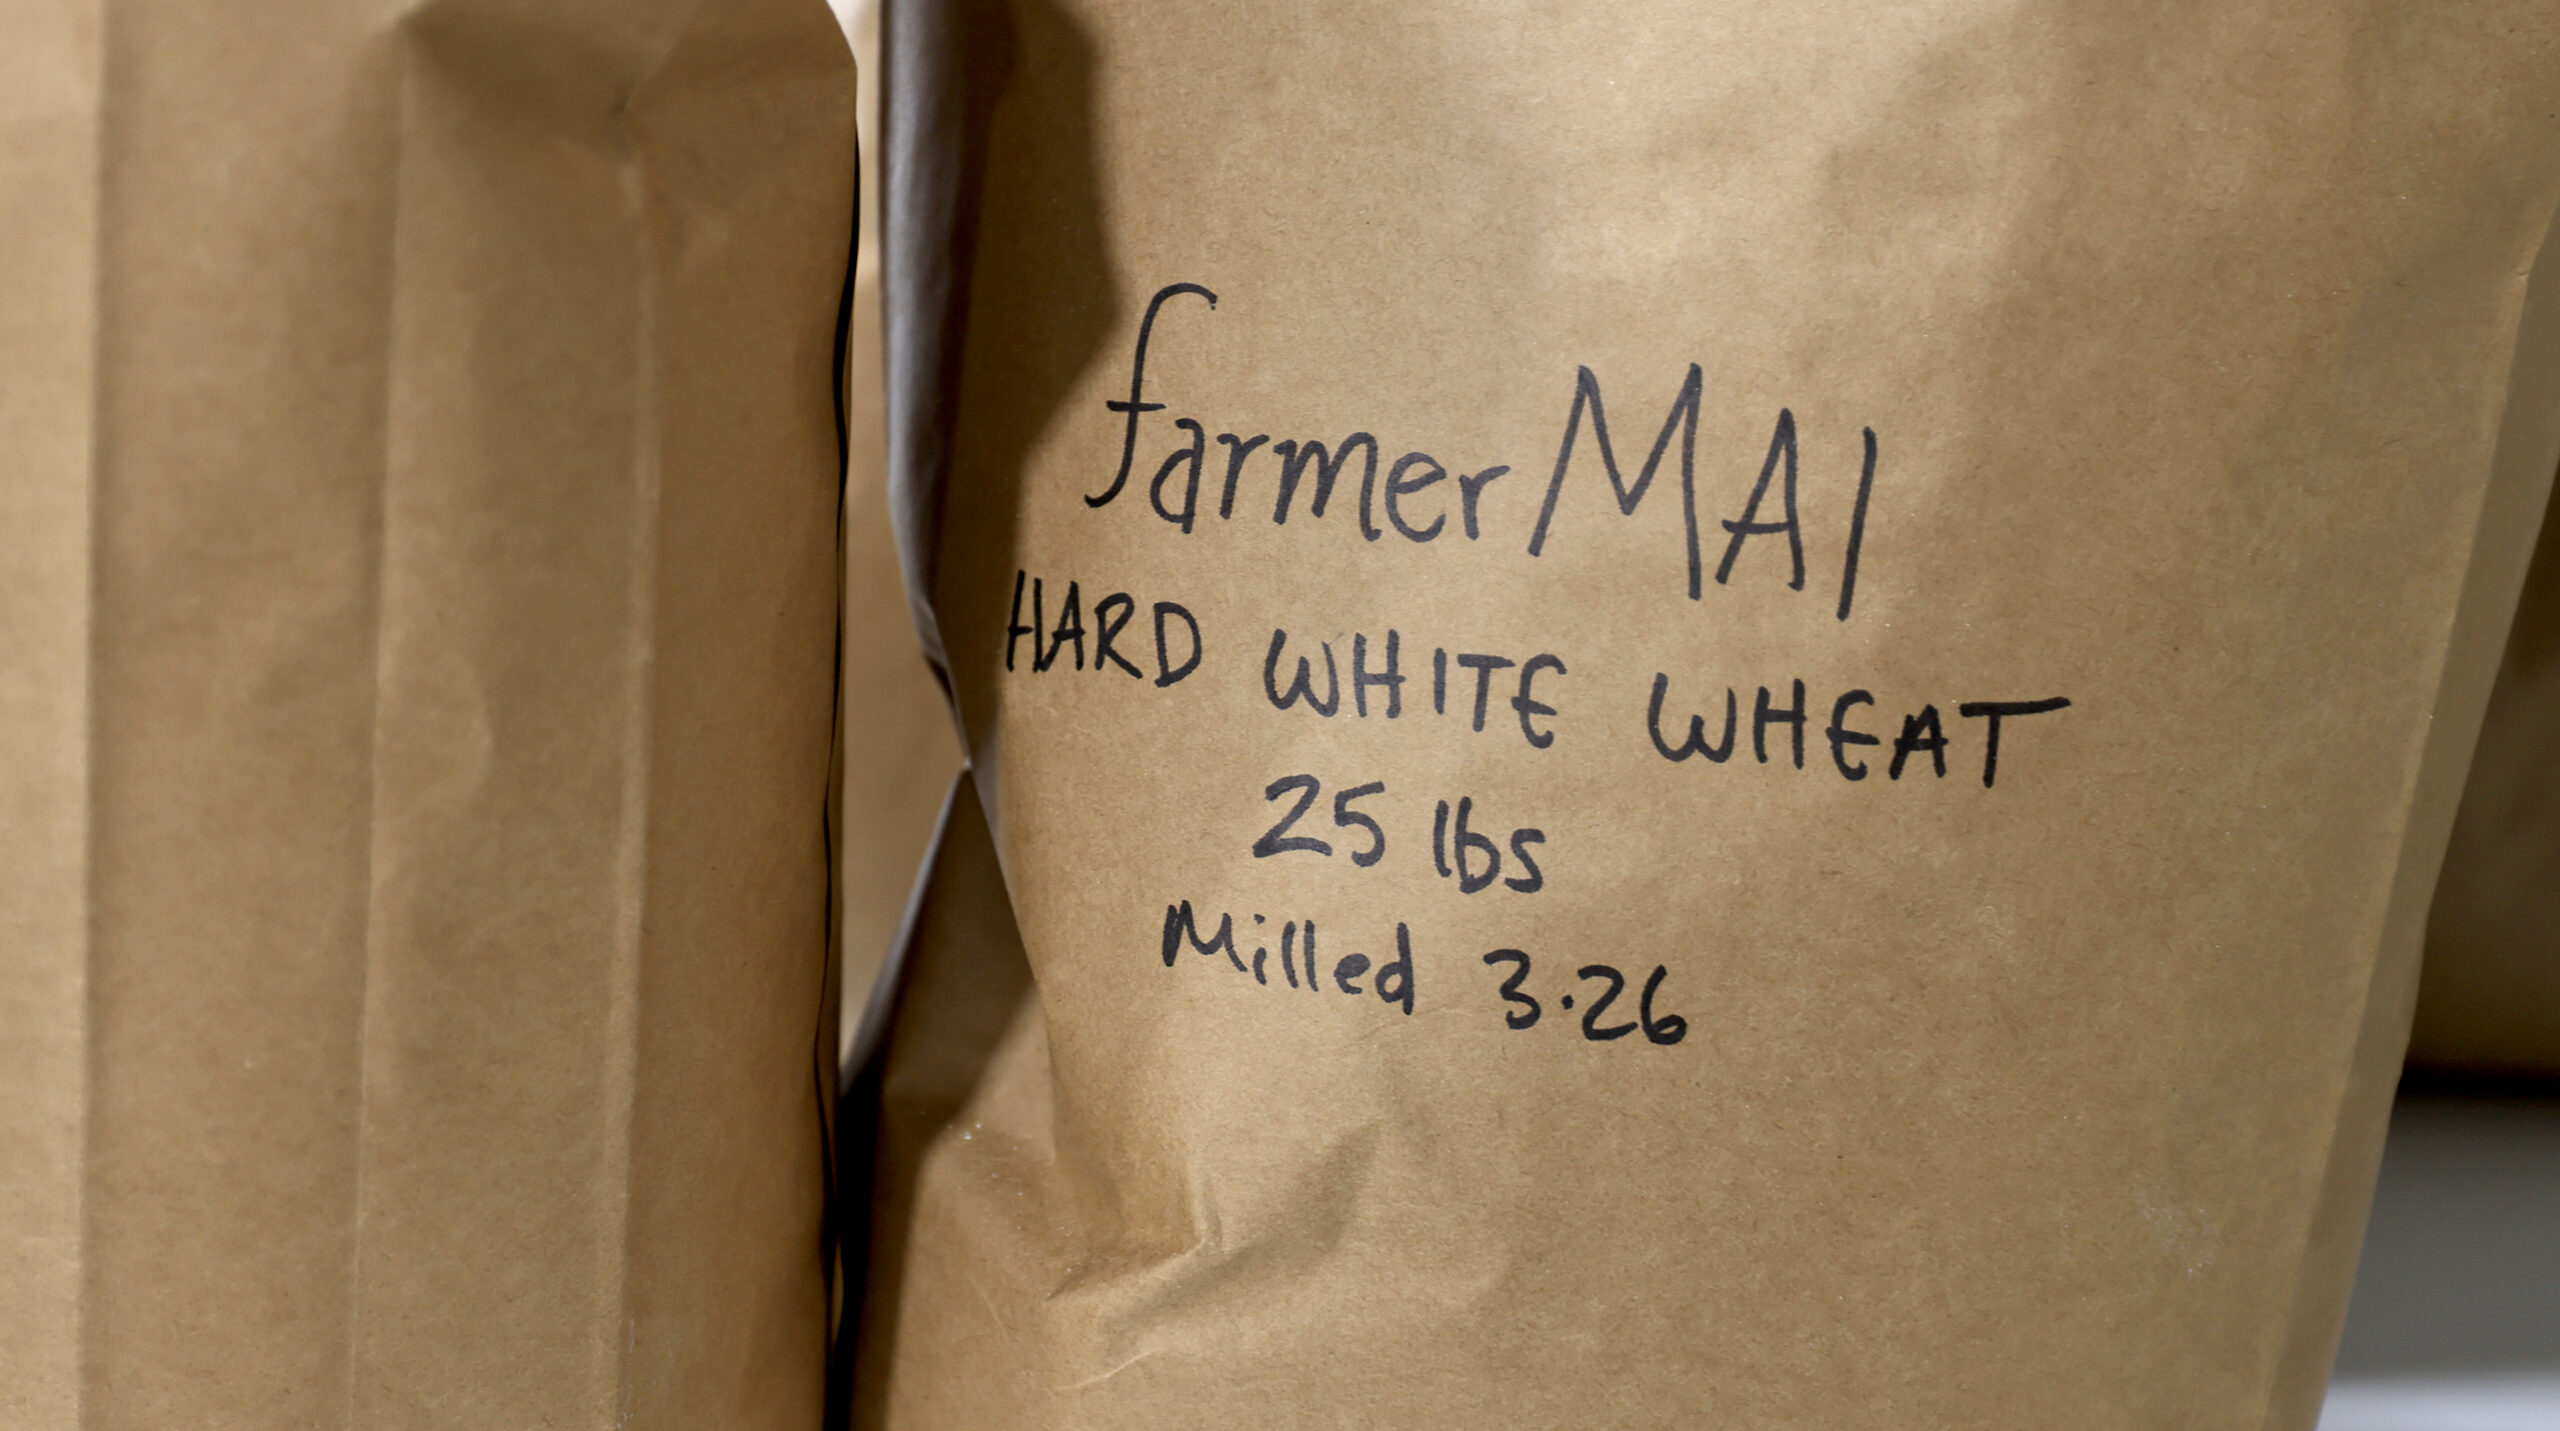 farmer MAI
HARD WHITE WHEAT
25 lbs
Milled 3.26